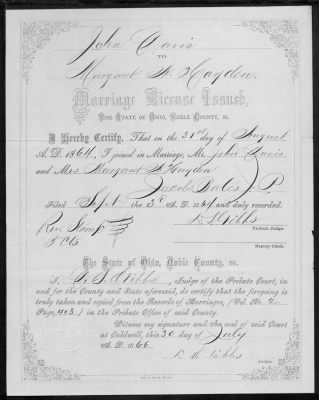 John Davis
TO
Margaret F. Haydon,
Marriage License Issued,
THE STATE OF OHIO, NOBLE COUNTY, SS.
I Hereby Certify, That on the 31st day of August
A. D. 1864, I joined in Marriage, Mr. John Davis
and Mrs Margaret F. Haydon
Jacob Bates J. P.
Filed Sept 3d A. D. 1864 and
D. S. Gibbs
Probate Judge.
Rev Stamp
5 Cts
Deputy Clerk.
The State of Ohio, Noble County, SS.
I, D. S. Gibbs, Judge of the Probate Court, in
and for the County and State aforesaid, do certify that the foregoing is
truly taken and copied from the Records of Marriages, (Vol. No. 2
Page, 403.) in the Probate Office of said County.
Witness my signature and the seal of said Court
at Caldwell, this 30 day of July
A. D. 1866.
D. S. Gibbs
Judge.